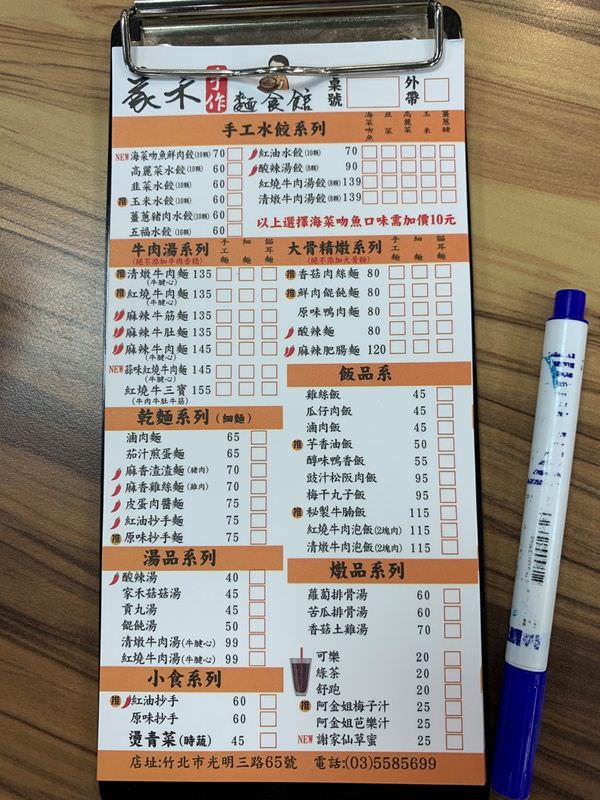 家禾 手作 麵食館 桌號 外帶
手工水餃系列 海菜吻魚 韭菜 高麗菜 玉米 薑蔥豬
NEW 海菜吻魚鮮肉餃(10顆) 70
高麗菜水餃(10顆) 60
韭菜水餃(10顆) 60
推 玉米水餃(10顆) 60
薑蔥豬肉水餃(10顆) 60
五福水餃(10顆) 60
紅油水餃(10顆) 70
酸辣湯餃(8顆) 90
紅燒牛肉湯餃(8顆) 139
清燉牛肉湯餃(8顆) 139
以上選擇海菜吻魚口味需加價10元
牛肉湯系列 手工麵 細麵 貓耳麵
(絕不添加牛肉香精)
推 清燉牛肉麵 135
(牛腱心)
推 紅燒牛肉麵 135
(牛腱心)
麻辣牛筋麵 135
麻辣牛肚麵 135
麻辣牛肉麵 145
(牛腱心)
NEW 蒜味紅燒牛肉麵 145
(牛腱心)
紅燒牛三寶 155
(牛肉牛肚牛筋)
大骨精燉系列 手工麵 細麵 貓耳麵
(絕不添加大骨粉)
推 香菇肉絲麵 80
推 鮮肉餛飩麵 80
原味鴨肉麵 80
酸辣麵 80
麻辣肥腸麵 120
乾麵系列(細麵)
滷肉麵 65
茄汁煎蛋麵 65
麻香渣渣麵(豬肉) 70
麻香雞絲麵(雞肉) 70
皮蛋肉醬麵 75
紅油抄手麵 75
推 原味抄手麵 75
飯品系
雞絲飯 45
瓜仔肉飯 45
滷肉飯 45
推 芋香油飯 50
醇味鴨香飯 55
豉汁松阪肉飯 95
梅干丸子飯 95
推 秘製牛腩飯 115
紅燒牛肉泡飯(2塊肉) 115
清燉牛肉泡飯(2塊肉) 115
湯品系列
酸辣湯 40
家禾菇菇湯 45
貢丸湯 45
餛飩湯 50
清燉牛肉湯(牛腱心) 99
紅燒牛肉湯(牛腱心) 99
燉品系列
蘿蔔排骨湯 60
苦瓜排骨湯 60
香菇土雞湯 70
小食系列
推 紅油抄手 60
原味抄手 60
燙青菜(時蔬) 45
可樂 20
綠茶 20
舒跑 20
推 阿金姐梅子汁 25
阿金姐芭樂汁 25
NEW 謝家仙草蜜 25
店址:竹北市光明三路65號 電話:(03)5585699